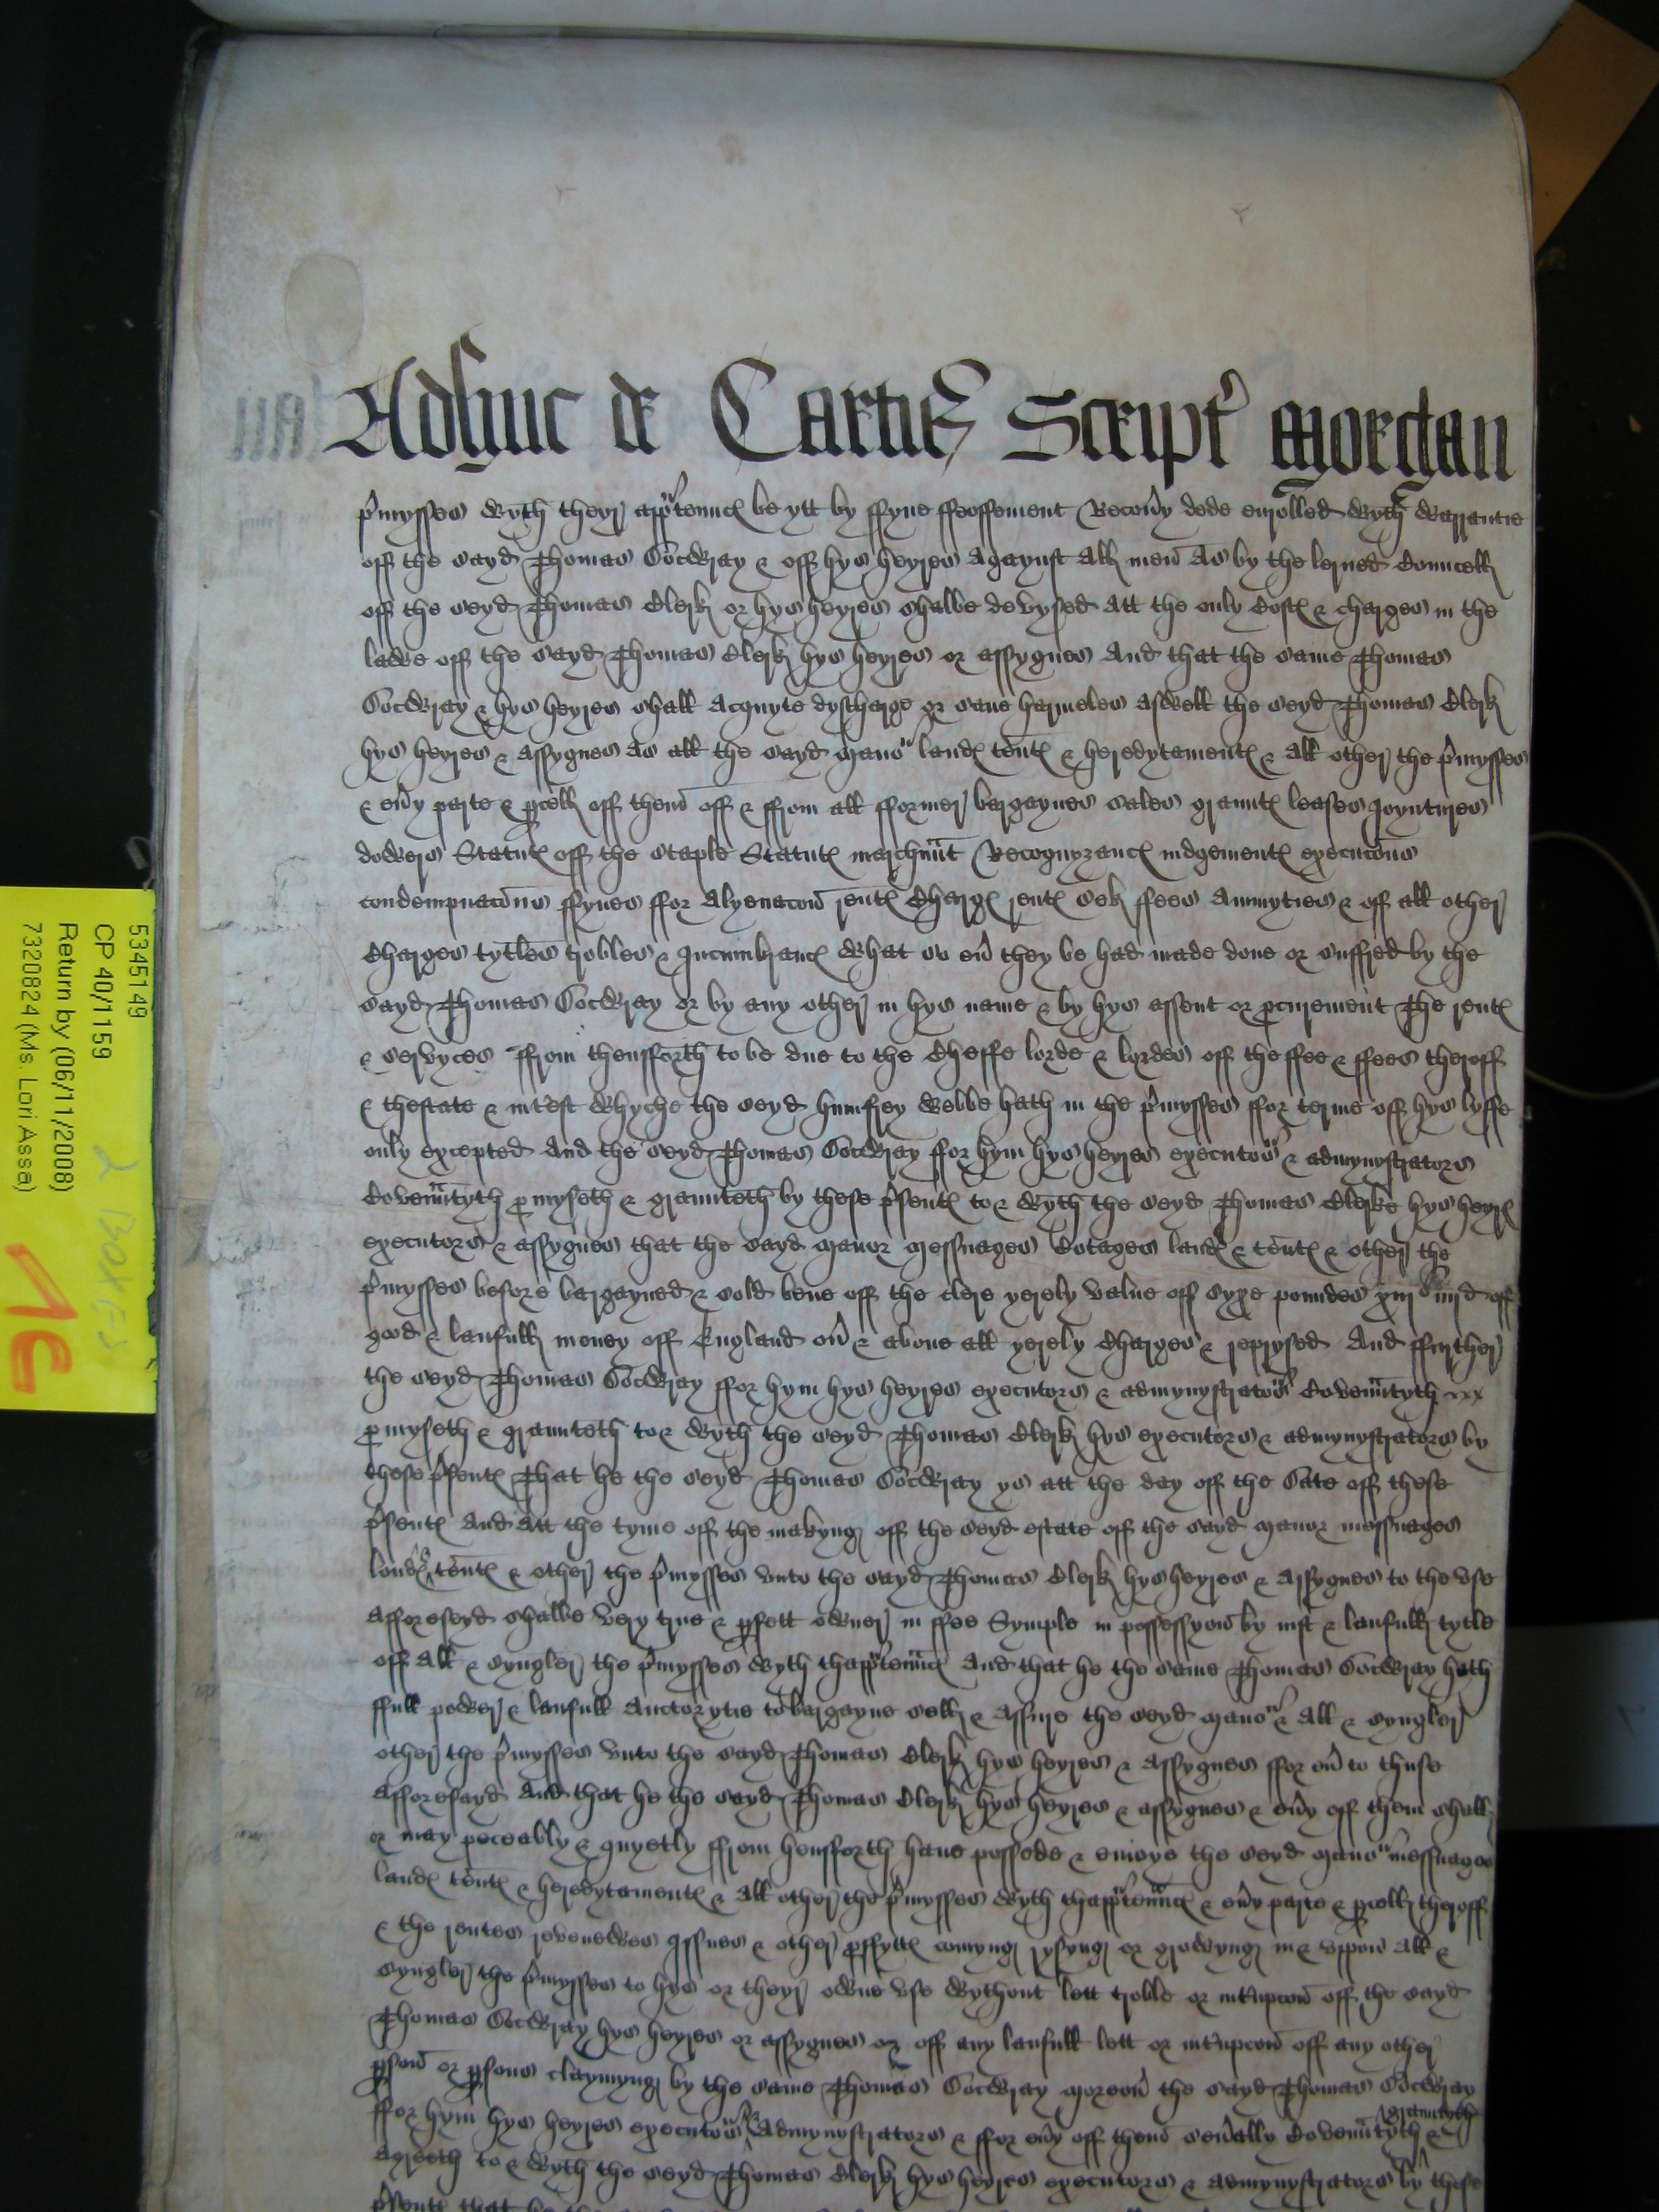 Adhuc de Cartis Script Morgan
p̃mysses wyth theyr app'tenñc be ytt by ffyne ffeoffement Recoũy dede enrolled wyth warrantie
off the sayd Thomas & off hys heyres agaynst all men as by the lerned Councell
off the seyd Thomas Clerk or hys heyres shalbe devysed att the only Cost & charges in the
lawe off the sayd Thomas Clerk hys heyres or assygnes And that the same Thomas
& hys heyres shall acquyte dyscharge or saue harmeles aswell the seyd Thomas Clerk
hys heyres & assygnes as all the sayd Mano^r land tent & heredytament & all other the p̃mysses
& eũy parte & pcell off them off & ffrom all fformer bargaynes sales graunt leases Joyntures
dowers Statut off the staple Statut m̃chaunt Recognyzanc iudgement execucõns
condempnacõns ffynes ffor alyenacõn rent Charg rent sek ffees Annuyties & off all other
Charges tytles trobles & Incumbranc what so eũ they be had made done or suffred by the
sayd Thomas or by any other in hys name & by hys assent or pcurement The rent
& servyces ffrom thensfforth to be due to the Cheffe lorde & lordes off the ffee & ffees theroff
& thestate & int'est whyche the seyd humfrey webbe hath in the p̃mysses ffor terme off hys lyffe
only excepted And the seyd Thomas ffor hym hys heyres executo^rs & admynystrators
Covenñtyth p myseth & graunteth by these p̃sent to & wyth the seyd Thomas Clerke hys heyr
executors & assygnes that the sayd Manor Messuages Cotages land & tent & other the
p̃mysses before bargayned & sold bene off the clere yerely value off syxe poundes xiij^s iiij^d off
good & laufull money off England oũ & aboue all yerely Charges & reprysed And ffurther
the seyd Thomas ffor hym hys heyres executors & admynystrato^rs Covenñtyth
p myseth & graunteth to & wyth the seyd Thomas Clerk hys executors & admynystrators by
these p̃sent That he the seyd Thomas ys att the day off the Date off these
p̃sent And att the tyme off the makyng off the seyd estate off the sayd Manor messuages
lond tent & other the p̃mysses vnto the sayd Thomas Clerk hys heyres & Assygnes to the vse
afforeseyd shalbe very true & pfett owner in ffee Symple in possessyon by iust & laufull tytle
off all & synguler the p̃mysses wyth thapp'tenñc And that he the same Thomas hath
ffull power & laufull Auctorytie to bargayne sell & assure the seyd Mano^r & all & synguler
other the p̃mysses vnto the sayd Thomas Clerk hys heyres & Assygnes ffor eũ to thuse
afforesayd And that he the sayd Thomas Clerk hys heyres & assygnes & eũy off them shall
or may peceably & quyetly ffrom hensfforth haue possede & enioye the seyd Mano^r messuages
land tent & heredytament & all other the p̃mysses wyth thapp'tenñc & eũy parte & pcell theroff
& the rentes revenewes Issues & other pffytt comyng rysyng or growyng in & vppon all &
synguler the p̃mysses to hys or theyr owne vse wythout lett troble or int'rupcõn off the sayd
Thomas hys heyres or assygnes or off any laufull lett or int'rupcõn off any other
pson or psons claymyng by the same Thomas Moreoũ the sayd Thomas
ffor hym hys heyres executo^rs & Admynystrators & ffor eũy off them seũally Covenñtyth grauntyth &
Agreeth to & wyth the seyd Thomas Clerk hys heyres executors & admynystrators by these
p̃sent that
5345149
CP 40/1159
Return by (06/11/2008)
7320824 (Ms. Lori Assa)
2 BOXES